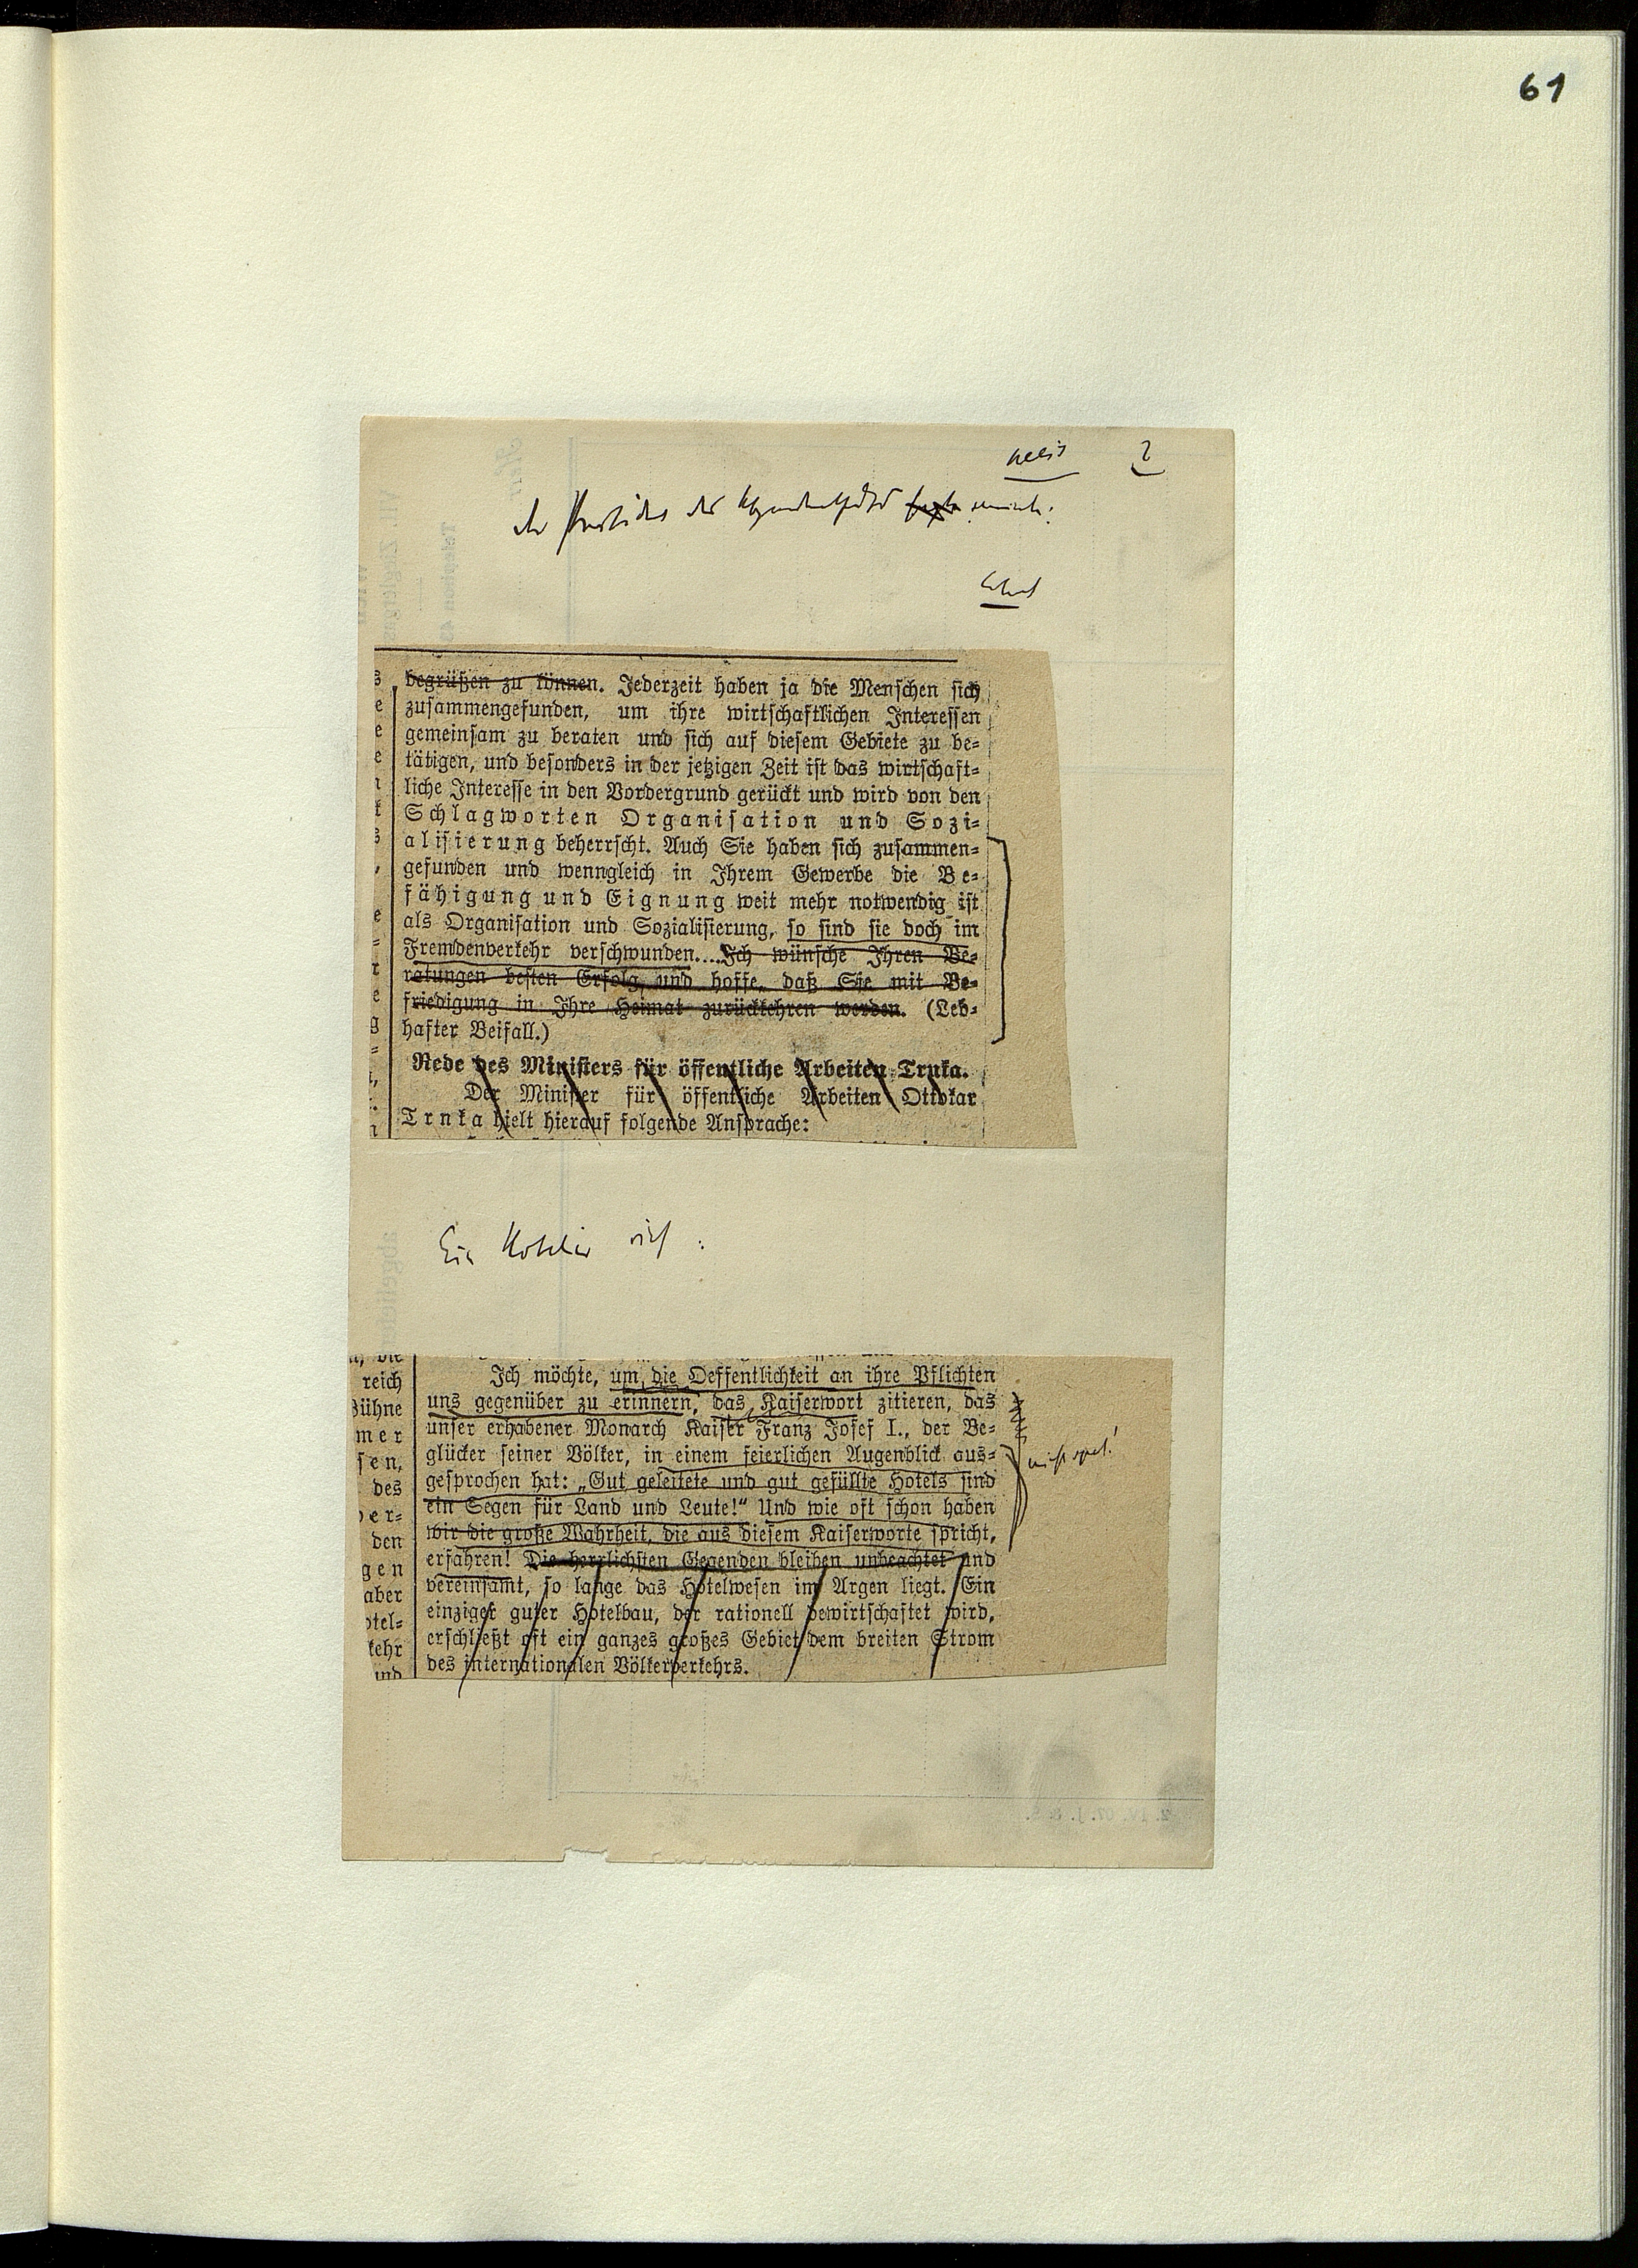 61
2
Der Präsident des Abgeordnetenhauses sagte meinte:
begrüßen zu können. Jederzeit haben ja die Menschen sich
zusammengefunden, um ihre wirtschaftlichen Interessen
gemeinsam zu beraten und sich auf diesem Gebiete zu be-
tätigen, und besonders in der jetzigen Zeit ist das wirtschaft-
liche Interesse in den Vordergrund gerückt und wird von den
Schlagworten Organisation und Sozi-
alisierung beherrscht. Auch Sie haben sich zusammen-
gefunden und wenngleich in Ihrem Gewerbe die Be-
fähigung und Eignung weit mehr notwendig ist
als Organisation und Sozialisierung, so sind sie doch im
Fremdenverkehr verschwunden.... Ich wünsche Ihren Be-
ratungen besten Erfolg und hoffe, daß Sie mit Be-
friedigung in Ihre Heimat zurückkehren werden. (Leb-
hafter Beifall.)
Rede des Ministers für öffentliche Arbeiten Trnka.
Der Minister für öffentliche Arbeiten Ottokar
Trnka hielt hierauf folgende Ansprache:
Ein Hotelier rief:
reich
Bühne
mer
sen,
des
ver-
den
gen
aber
otel-
kehr
und
Ich möchte, um die Oeffentlichkeit an ihre Pflichten
uns gegenüber zu erinnern, das Kaiserwort zitieren, das
unser erhabener Monarch Kaiser Franz Josef I., der Be-
glücker seiner Völker, in einem feierlichen Augenblick aus-
gesprochen hat: „Gut geleitete und gut gefüllte Hotels sind
ein Segen für Land und Leute!“ Und wie oft schon haben
wir die große Wahrheit, die aus diesem Kaiserworte spricht,
erfahren! Die herrlichsten Gegenden bleiben unbeachtet und
vereinsamt, so lange das Hotelwesen im Argen liegt. Ein
einziger guter Hotelbau, der rationell bewirtschaftet wird,
erschließt oft ein ganzes großes Gebiet dem breiten Strom
des internationalen Völkerverkehrs.
nicht sperr!